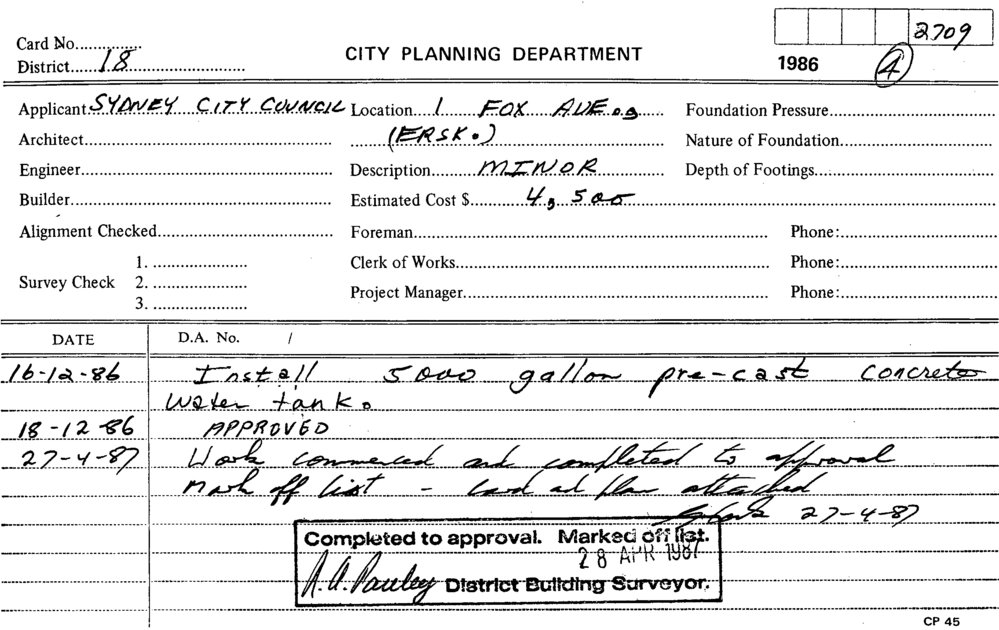 2709
Card No.
CITY PLANNING DEPARTMENT
District 18
1986 4
Applicant SYDNEY CITY COUNCIL Location 1 FOX AVE. Foundation Pressure
Architect (ERSK.) Nature of Foundation
Engineer Description MINOR Depth of Footings
Builder Estimated Cost $ 4,500
Alignment Checked Foreman Phone:
1. Clerk of Works Phone:
Survey Check 2.
Project Manager Phone:
3.
DATE D.A. No. /
16-12-86 Install 5000 gallon pre-cast concrete
water tank.
18-12-86 APPROVED
27-4-87 Work commenced and completed to approval
Mark off list - Card ad plan attached
27-4-87
Completed to approval. Marked off list.
28 APR 1987
District Building Surveyor.
CP 45